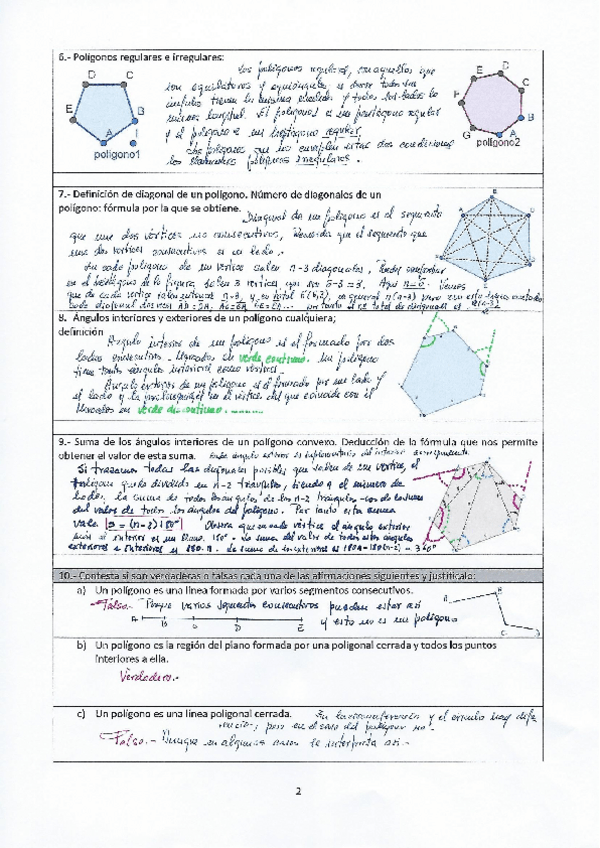 6.- Polígonos regulares e irregulares:
Los polígonos regulares, son aquellos que
son equiláteros y equiángulos, es decir todos sus
ángulos tienen la misma medida y todos los lados la
misma longitud. El polígono1 es un pentágono regular
y el polígono2 es un heptágono regular.
Los polígonos que no cumplan estas dos condiciones
los llamamos polígonos irregulares.
D C E B A I
polígono1
E D C F B G A
polígono2
7.- Definición de diagonal de un polígono. Número de diagonales de un
polígono: fórmula por la que se obtiene.
Diagonal de un polígono es el segmento
que une dos vértices no consecutivos, Recuerda que el segmento que
une dos vértices consecutivos es un lado.
En cada polígono de un vértice salen n-3 diagonales,
en el de la figura salen 3 vértices
que de cada vértice salen n-3, y en total
8. Ángulos interiores y exteriores de un polígono cualquiera;
definición
Ángulo interior de un polígono es el formado por dos
lados consecutivos. Marcados en verde continuo. Un polígono
tiene tantos ángulos interiores como vértices.
Ángulo exterior de un polígono es el formado por un lado y
el lado y la prolongación en el vértice del que coincide con el
Marcados en verde discontinuo.
9.- Suma de los ángulos interiores de un polígono convexo. Deducción de la fórmula que nos permite
obtener el valor de esta suma. Cada ángulo exterior es suplementario del interior correspondiente.
Si trazamos todas las diagonales posibles que salen de un vértice, el
polígono queda dividido en n-2 triángulos, siendo n el número de
lados, la suma de todos los ángulos de los n-2 triángulos
del valor de todos los ángulos del polígono. Por tanto esta suma
vale S = (n-2)180° Observa que en cada vértice el ángulo exterior
más el interior es un llano. 180°. La suma del valor de todos estos ángulos
exteriores e interiores es 180·n. La suma de los exteriores es 180n-180(n-2) = 360°
10.- Contesta si son verdaderas o falsas cada una de las afirmaciones siguientes y justifícalo:
a) Un polígono es una línea formada por varios segmentos consecutivos.
Falso.- Porque varios segmentos consecutivos pueden estar así
A B C D E
y esto no es un polígono
A B C D
b) Un polígono es la región del plano formada por una poligonal cerrada y todos los puntos
interiores a ella.
Verdadero.-
c) Un polígono es una línea poligonal cerrada. En la circunferencia y el círculo hay dife
rencia, pero en el caso del polígono no.
Falso.- Aunque en algunos casos se interpreta así.-
2